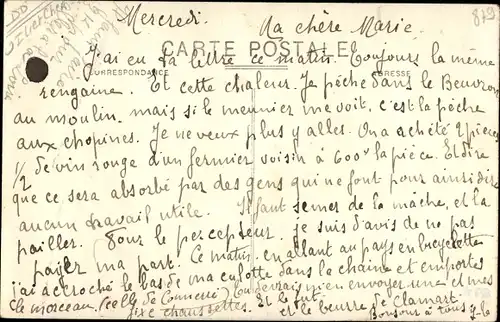 Mercredi. Ma chère Marie
J'ai eu ta lettre ce matin. Toujours la même
CARTE POSTALE
CORRESPONDANCE ADRESSE
rengaine. Et cette chaleur. Je pêche dans le Beuvron
au moulin, mais si le meunier me voit, c'est la pêche
aux chopines. Je ne veux plus y aller. On a acheté 2 pièces
1/2 de vin rouge d'un fermier voisin à 600f la pièce. Et dire
que ce sera absorbé par des gens qui ne font pour ainsi dire
aucun travail utile. Il faut semer de la mâche, et la
pailler. Pour le percepteur, je suis d'avis de ne pas
payer ma part. Ce matin en allant au pays en bicyclette
j'ai accroché le bas de ma culotte dans la chaine et emporté
le morceau. (celle de Connerré) Tu devrais m'en envoyer une et mes
fixe chaussettes. Et le fut
et le beurre de Clamart.
Bonjour à tous
829